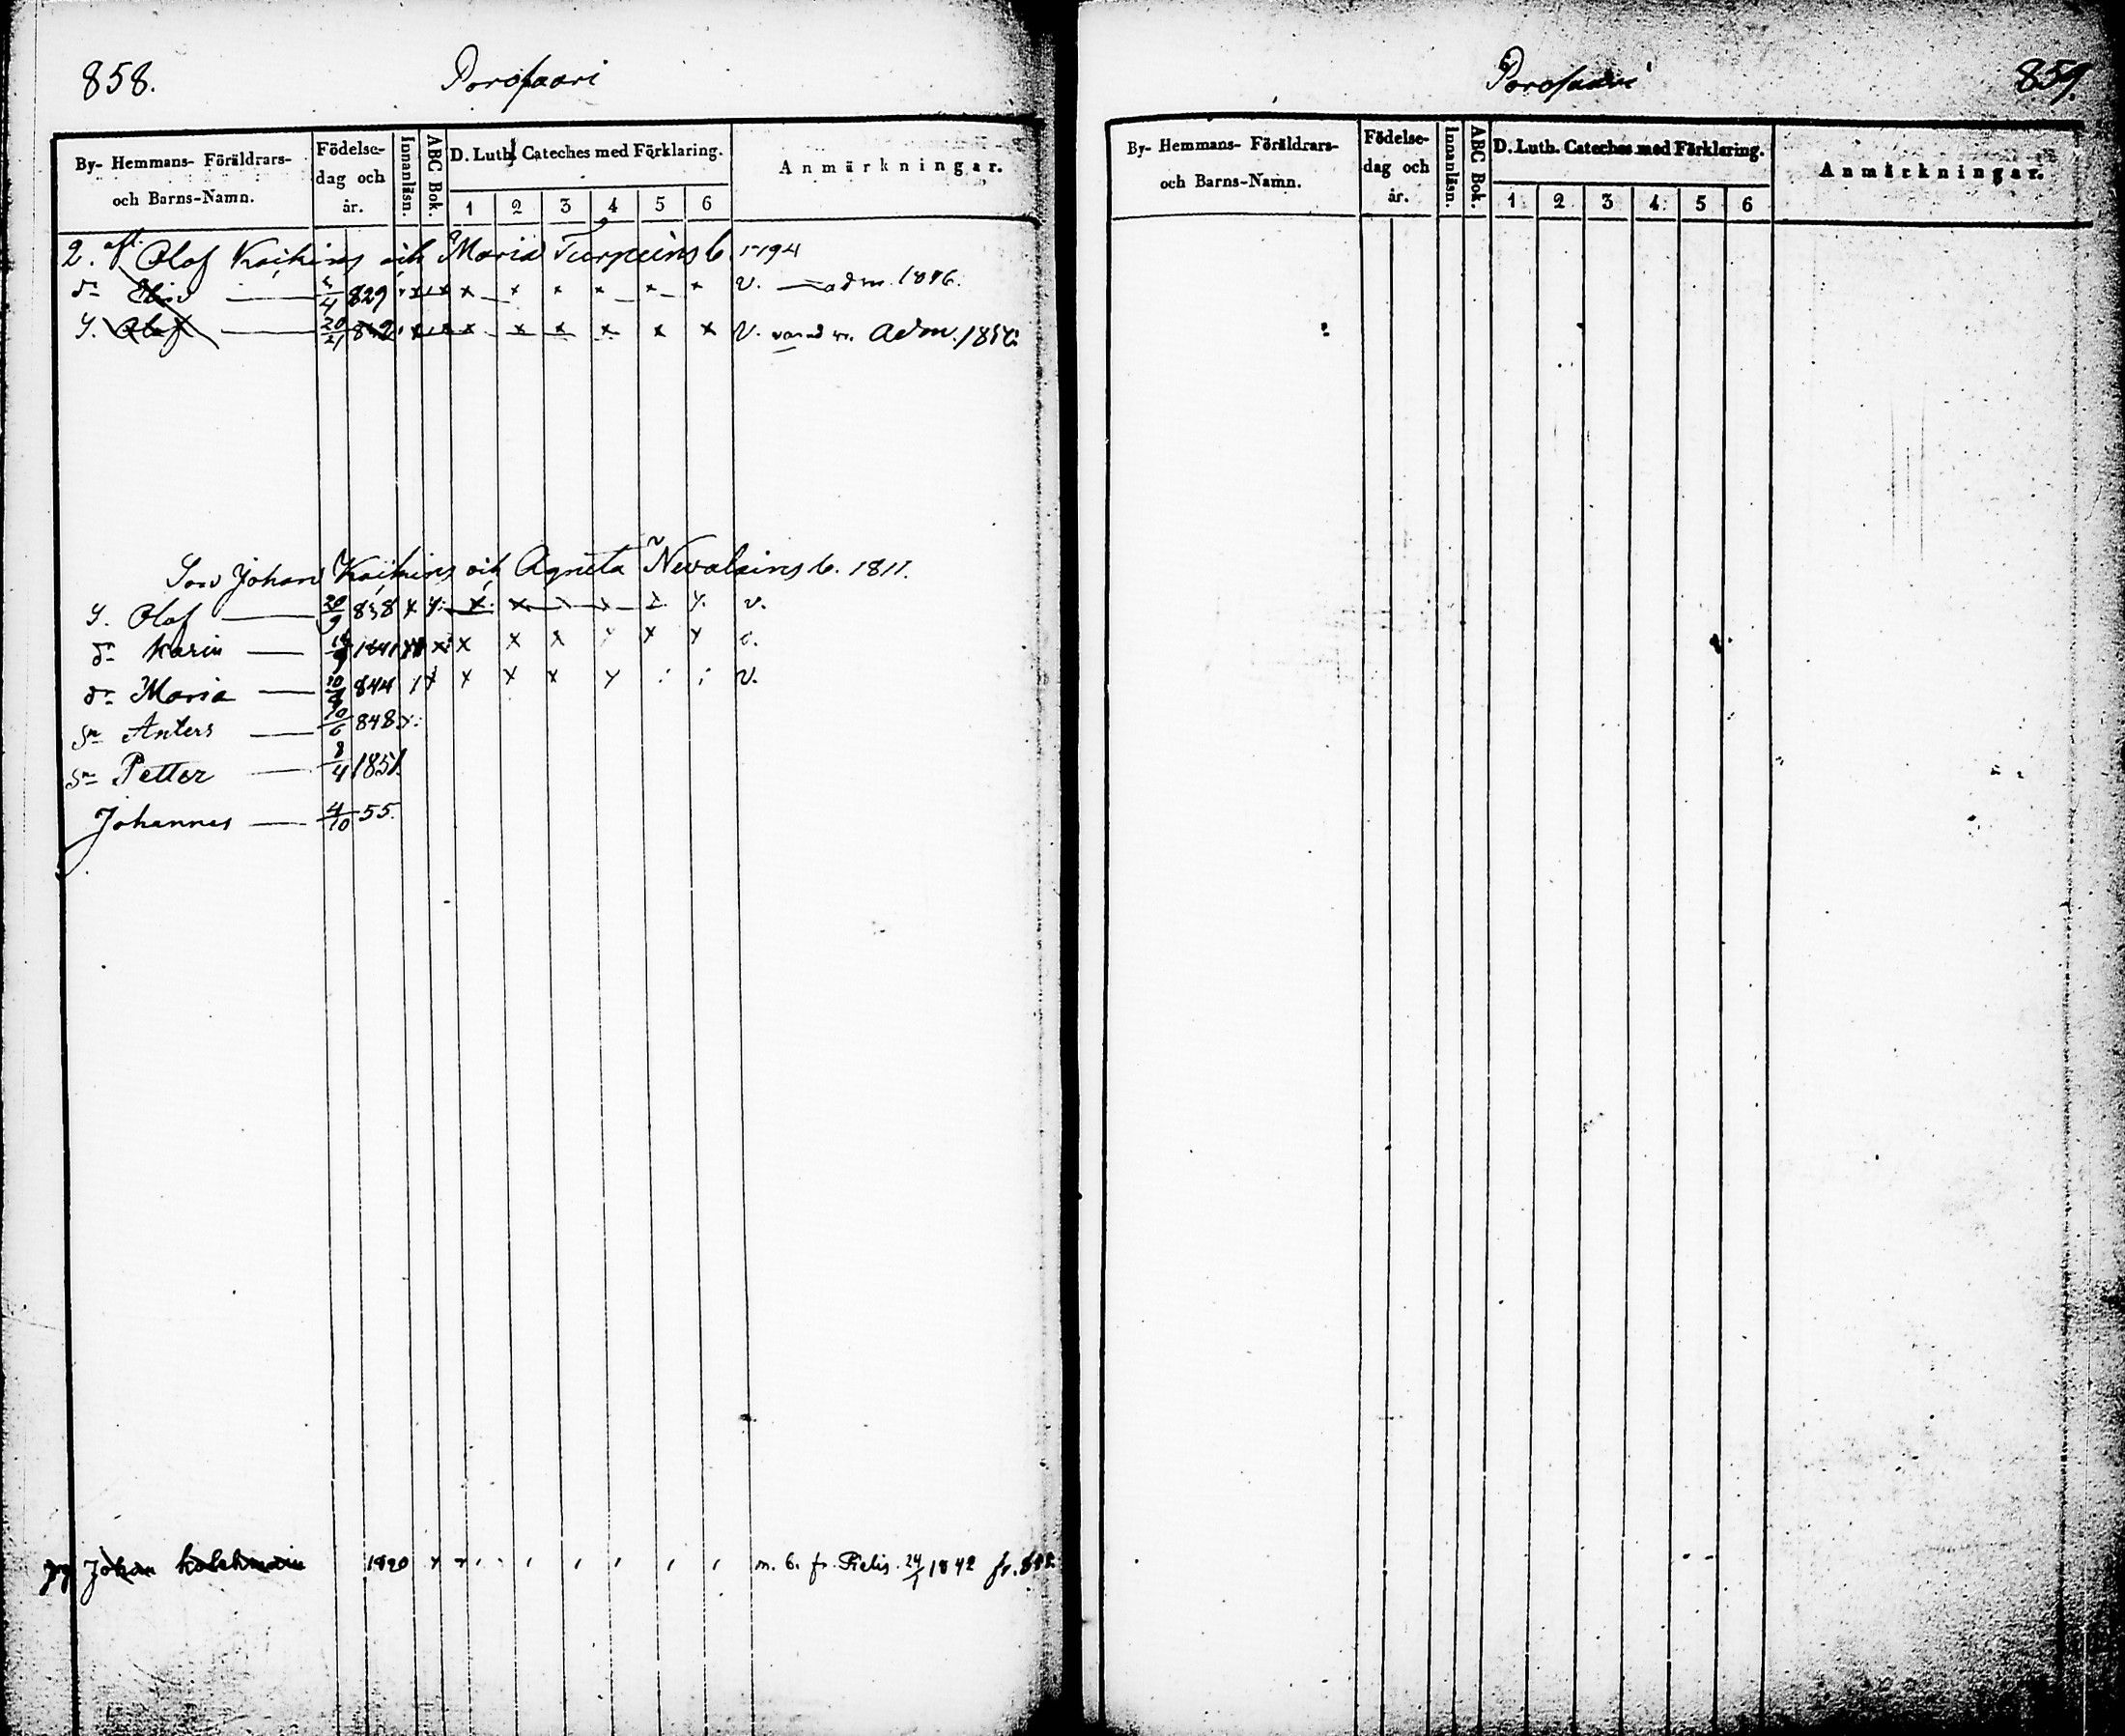 858.
Porosaari
By- Hemmans- Föräldrars- och Barns-Namn.
Födelse- dag och år.
Innanläsn.
ABC Bok.
D. Luth. Cateches med Förklaring.
1 2 3 4 5 6
Anmärkningar.
2. afl. Olof Kaikins och Maria Turpeins b. 1794
dr 4 829 x x x x x x x x v. adm. 1846.
S. Olof 20 x x x x x x x v. adm.
Son Johan Kaikins och Agneta Nevalains b. 1811.
S. Olof 20/9 838 x x x x v.
dr Karin 1841 x x x x x x v.
dr Maria 10 844 x x x x v.
Sn Anters 10/6 848
Sn Petter 8/4 1851.
Johannes 4/10 55.
Johan Kolehmain 1820 m. b. fr. Pielis. 24/1 1842 fr.
Porosaari
859.
By- Hemmans- Föräldrars- och Barns-Namn.
Födelse- dag och år.
Innanläsn.
ABC Bok.
D. Luth. Cateches med Förklaring.
1 2 3 4 5 6
Anmärkningar.